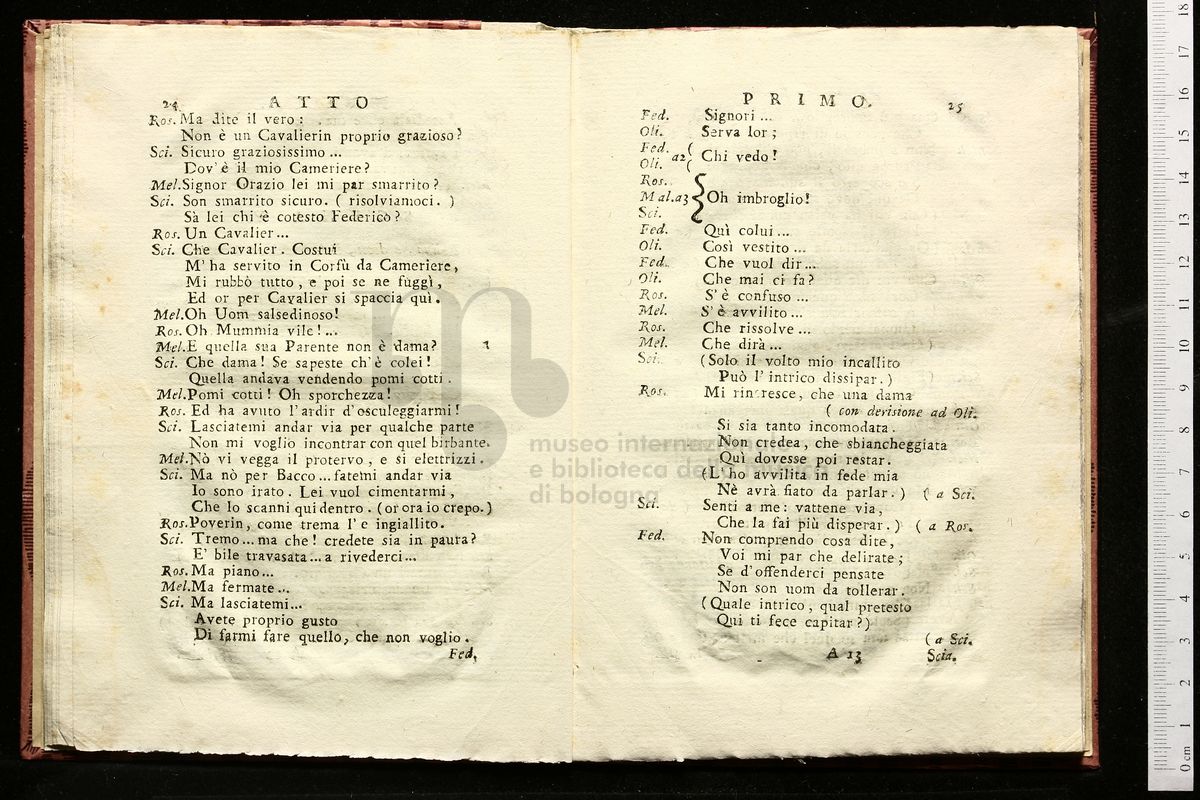 24 ATTO
Ros. Ma dite il vero:
Non è un Cavalierin proprio grazioso?
Sci. Sicuro graziosissimo ...
Dov' è il mio Cameriere?
Mel. Signor Orazio lei mi par smarrito?
Sci. Son smarrito sicuro. ( risolviamoci. )
Sà lei chi è cotesto Federico?
Ros. Un Cavalier ...
Sci. Che Cavalier. Costui
M' ha servito in Corfù da Cameriere,
Mi rubbò tutto, e poi se ne fuggì,
Ed or per Cavalier si spaccia quì.
Mel. Oh Uom salsedinoso!
Ros. Oh Mummia vile! ...
Mel. E quella sua Parente non è dama?
Sci. Che dama! Se sapeste ch' è colei!
Quella andava vendendo pomi cotti.
Mel. Pomi cotti! Oh sporchezza!
Ros. Ed ha avuto l' ardir d' osculeggiarmi!
Sci. Lasciatemi andar via per qualche parte
Non mi voglio incontrar con quel birbante.
Mel. Nò vi vegga il protervo, e si elettrizzi.
Sci. Ma nò per Bacco ... fatemi andar via
Io sono irato. Lei vuol cimentarmi,
Che lo scanni quì dentro. (or ora io crepo.)
Ros. Poverin, come trema l' e ingiallito.
Sci. Tremo ... ma che! credete sia in paura?
E' bile travasata ... a rivederci ...
Ros. Ma piano ...
Mel. Ma fermate ...
Sci. Ma lasciatemi ...
Avete proprio gusto
Di farmi fare quello, che non voglio.
Fed.
PRIMO. 25
Fed. Signori ...
Oli. Serva lor;
Fed. (
a2 Chi vedo!
Oli. (
Ros.
Mal. a3 Oh imbroglio!
Sci.
Fed. Quì colui ...
Oli. Così vestito ...
Fed. Che vuol dir ...
Oli. Che mai ci fa?
Ros. S' è confuso ...
Mel. S' è avvilito ...
Ros. Che rissolve ...
Mel. Che dirà ...
Sci. (Solo il volto mio incallito
Può l' intrico dissipar. )
Ros. Mi rincresce, che una dama
( con derisione ad Oli.
Si sia tanto incomodata.
Non credea, che sbiancheggiata
Quì dovesse poi restar.
(L' ho avvilita in fede mia
Nè avrà fiato da parlar. ) ( a Sci.
Sci. Senti a me: vattene via,
Che la fai più disperar. ) ( a Ros.
Fed. Non comprendo cosa dite,
Voi mi par che delirate;
Se d' offenderci pensate
Non son uom da tollerar.
(Quale intrico, qual pretesto
Qui ti fece capitar?)
( a Sci.
A 13 Scia.
museo internaz
e biblioteca della musica
di bologna